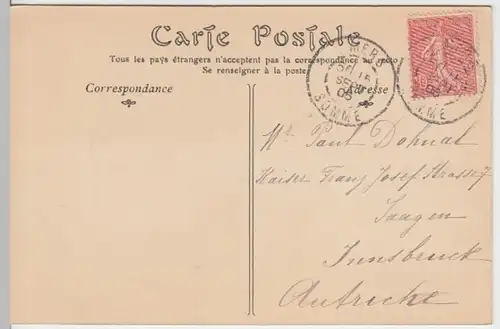 Carte Postale
Tous les pays étrangers n'acceptent pas la correspondance au recto
Se renseigner à la poste
Correspondance
Adresse
SOMME
Mr Paul Dohnal
Kaiser Franz Josef Strasse 7
Saagen
Innsbruck
Autriche